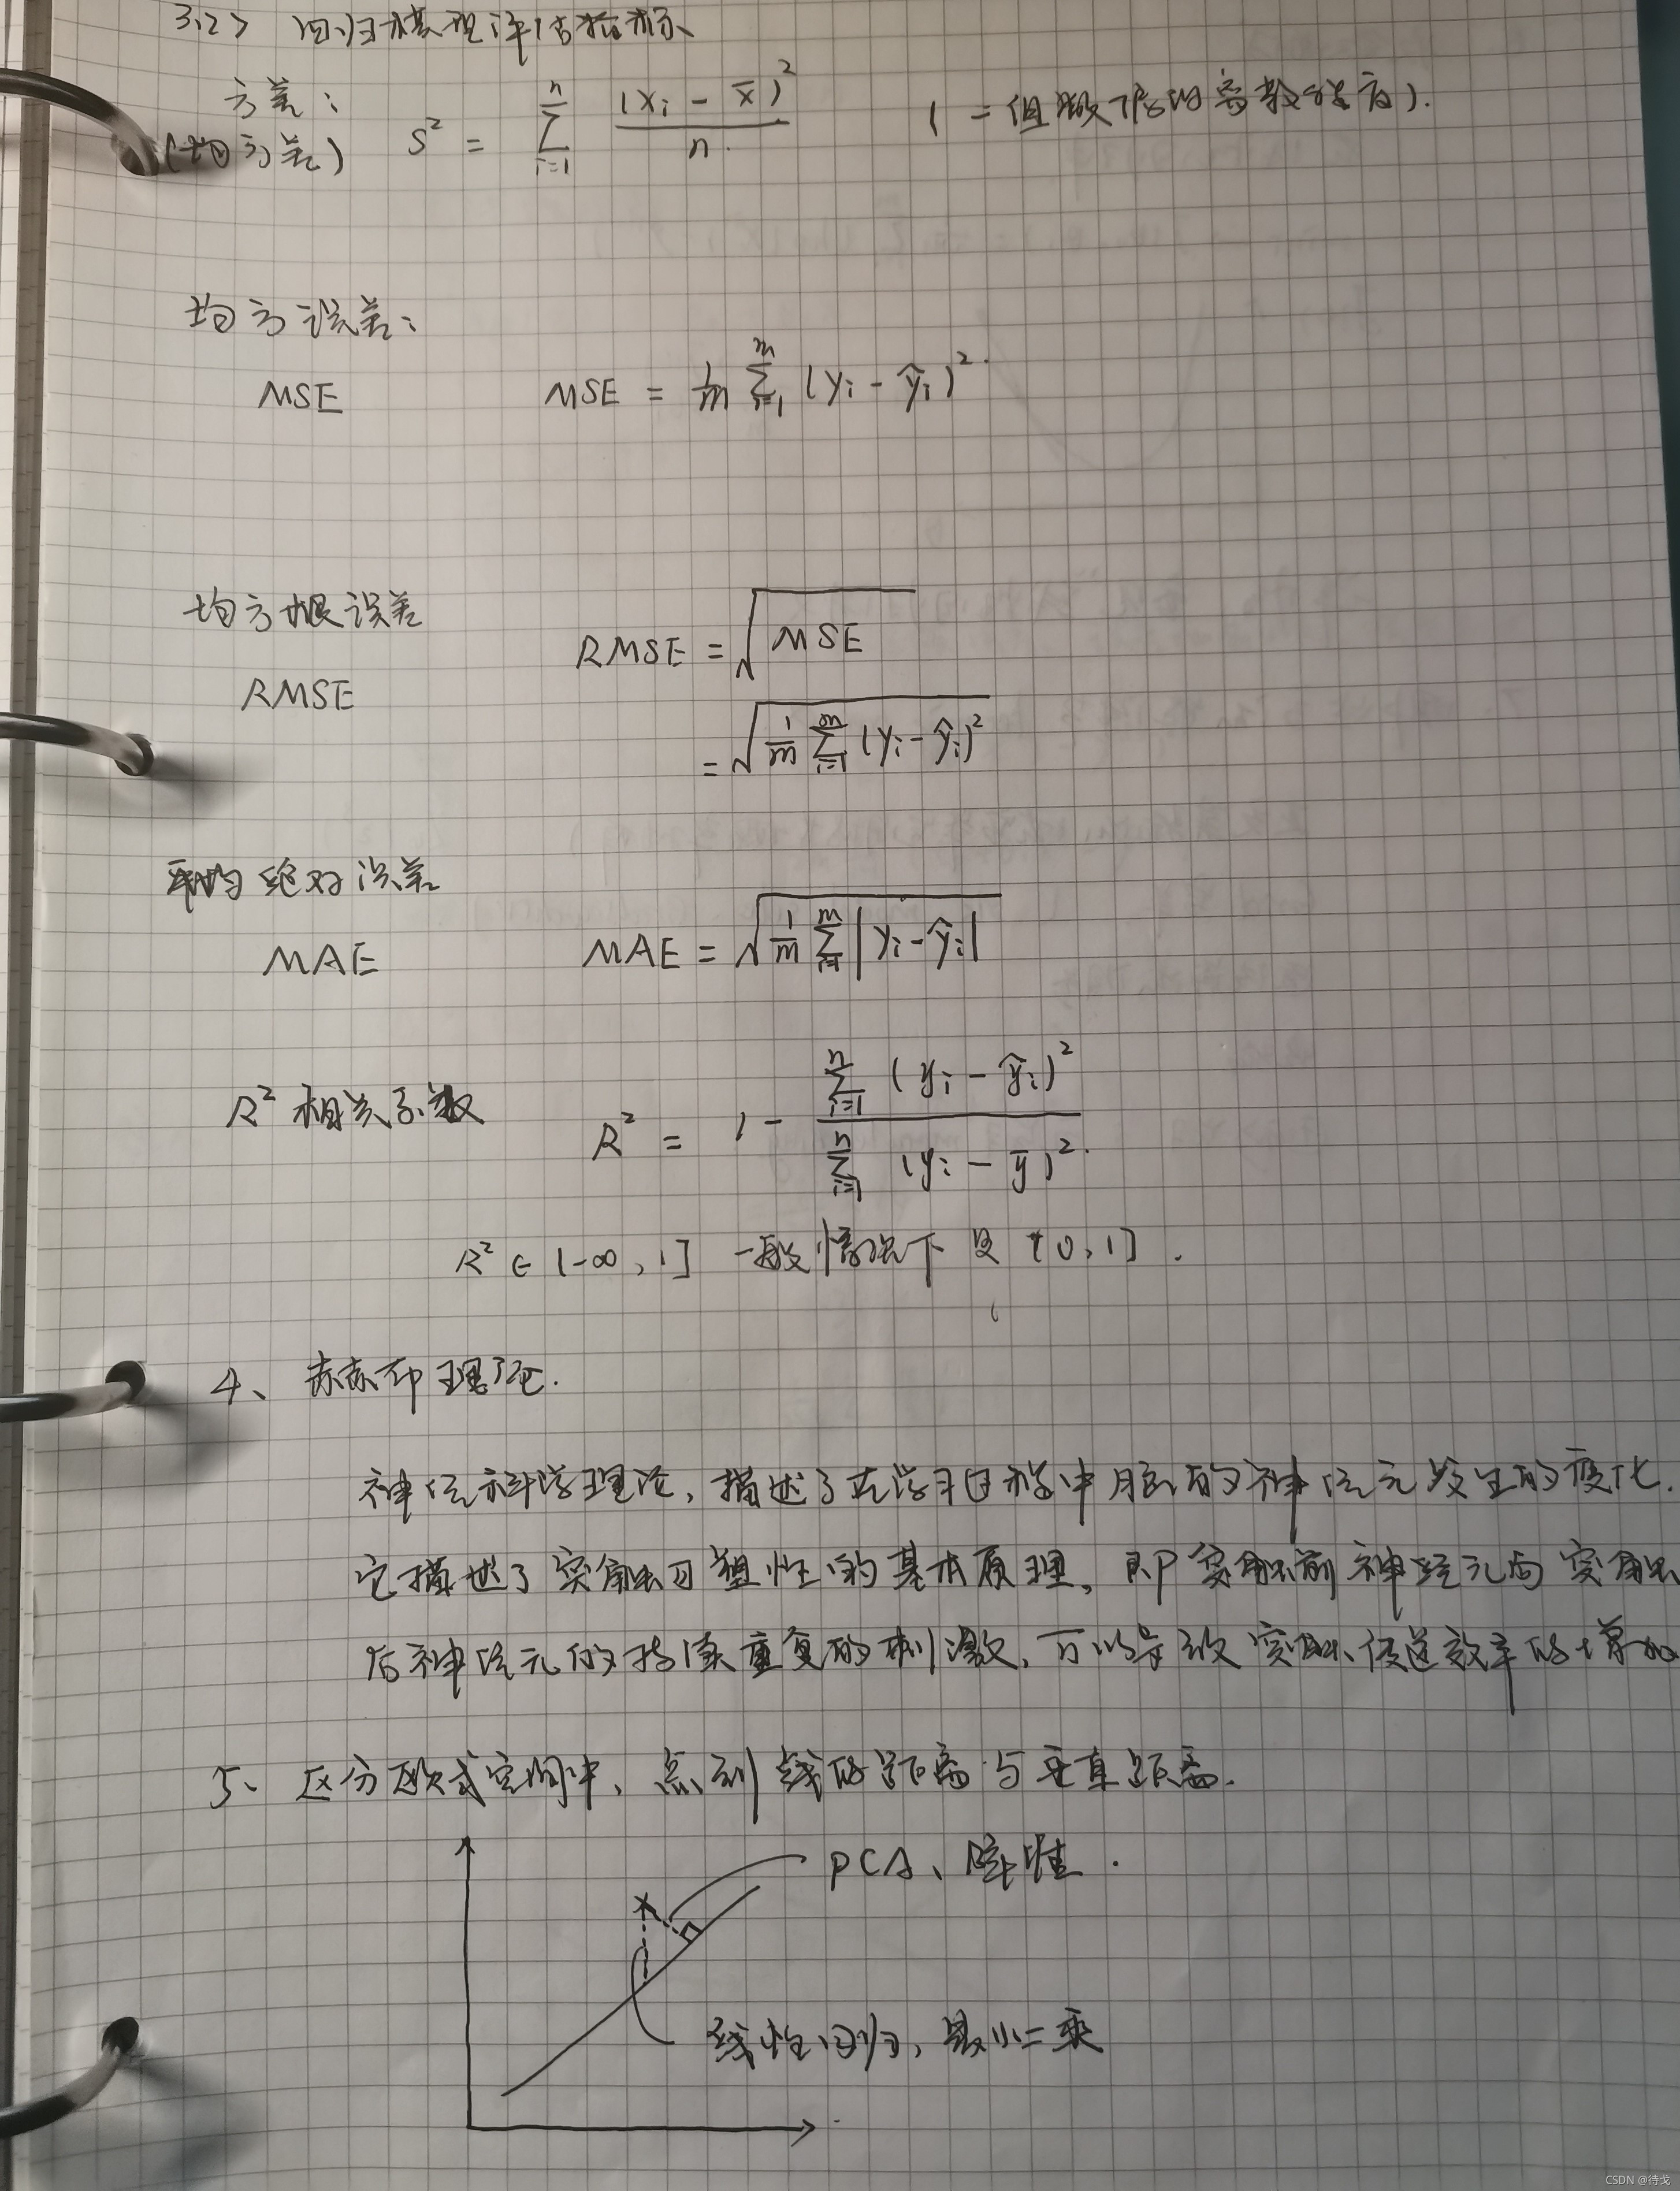 3.2> 回归模型评估指标
方差:
(均方差) S² = \sum_{i=1}^{n} \frac{(x_i - \bar{x})^2}{n} (一组数据的离散程度).
均方误差:
MSE MSE = \frac{1}{m} \sum_{i=1}^{m} (y_i - \hat{y}_i)^2.
均方根误差 RMSE = \sqrt{MSE}
RMSE = \sqrt{\frac{1}{m} \sum_{i=1}^{m} (y_i - \hat{y}_i)^2}
平均绝对误差
MAE MAE = \sqrt{\frac{1}{m} \sum_{i=1}^{m} |y_i - \hat{y}_i|}
R² 相关系数 R² = 1 - \frac{\sum_{i=1}^{n} (y_i - \hat{y}_i)^2}{\sum_{i=1}^{n} (y_i - \bar{y})^2}.
R² ∈ (-∞, 1] 一般情况下 是 [0, 1].
4、赫布理论.
神经科学理论, 描述了在学习过程中脑的神经元发生的变化.
它描述了突触可塑性的基本原理, 即突触前神经元向突触
后神经元的持续重复的刺激, 可以导致突触传递效率的增加
5、区分欧式空间中, 点到线的距离与垂直距离.
PCA、
线性回归, 最小二乘
CSDN @待戈